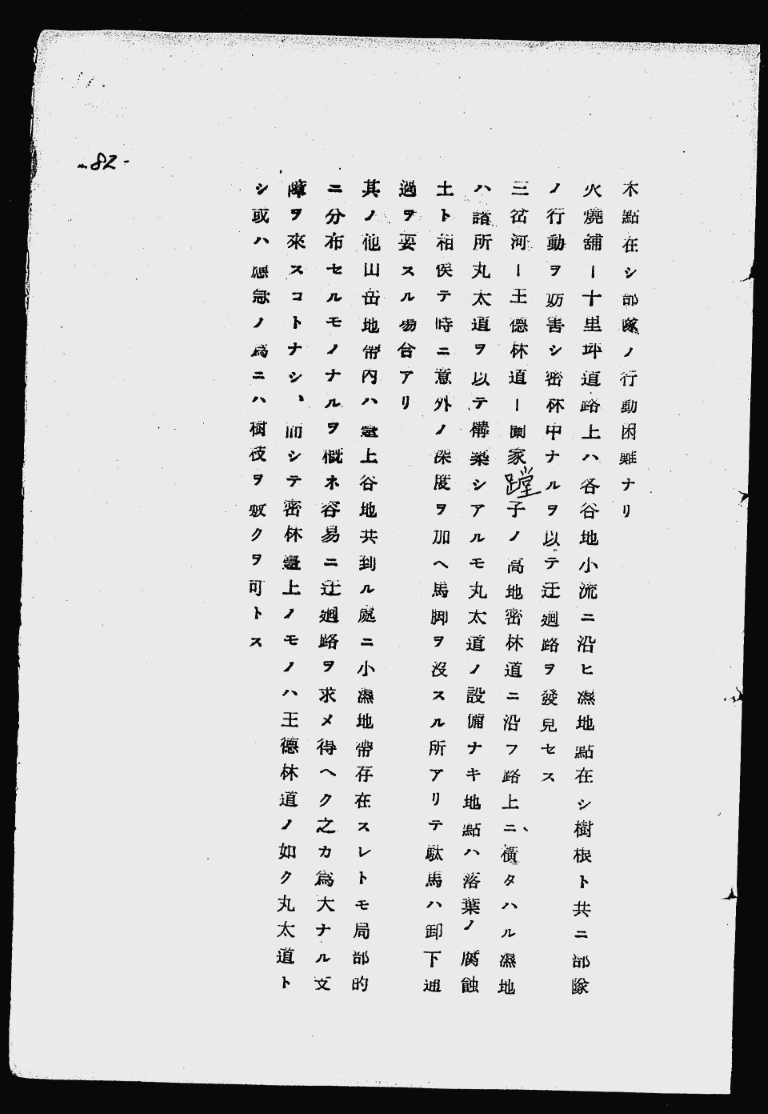 82-
木點在シ部隊ノ行動困難ナリ
火燒舖ー十里坪道路上ハ各谷地小流ニ沿ヒ濕地點在シ樹根ト共ニ部隊
ノ行動ヲ妨害シ密林中ナルヲ以テ迂廻路ヲ發見セス
三岔河ー王德林道ー闞家蹚子ノ高地密林道ニ沿フ路上ニ、橫タハル濕地
ハ諸所丸太道ヲ以テ構築シアルモ丸太道ノ設備ナキ地點ハ落葉ノ腐蝕
土ト相俟テ時ニ意外ノ深度ヲ加ヘ馬脚ヲ沒スル所アリテ駄馬ハ卸下通
過ヲ要スル場合アリ
其ノ他山岳地帶內ハ邊上谷地共到ル處ニ小濕地帶存在スレトモ局部的
ニ分布セルモノナルヲ概ネ容易ニ迂廻路ヲ求メ得ヘク之カ爲大ナル支
障ヲ來スコトナシ、而シテ密林邊上ノモノハ王德林道ノ如ク丸太道ト
シ或ハ應急ノ爲ニハ樹枝ヲ敷クヲ可トス